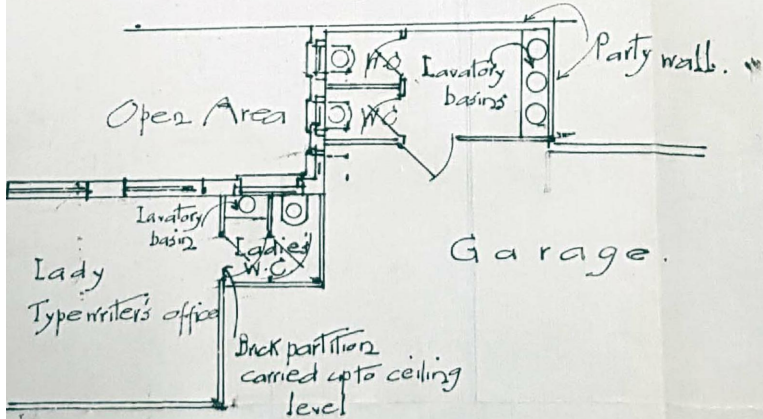 WC
Lavatory
basins
Party wall.
Open Area
WC
Lavatory
basin
Ladies'
W.C
Garage.
Lady
Typewriter's office
Brick partition
carried up to ceiling
level